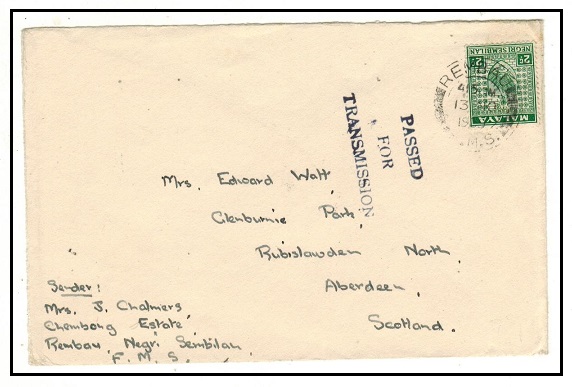 NEGRI SEMBILAN
2c 2c
MALAYA
PASSED
FOR
TRANSMISSION
Mrs. Edward Watt,
Glenburnie Park,
Rubislawden North,
Aberdeen,
Scotland.
Sender:
Mrs. J. Chalmers,
Chembong Estate,
Rembau, Negri Sembilan,
F.M.S.